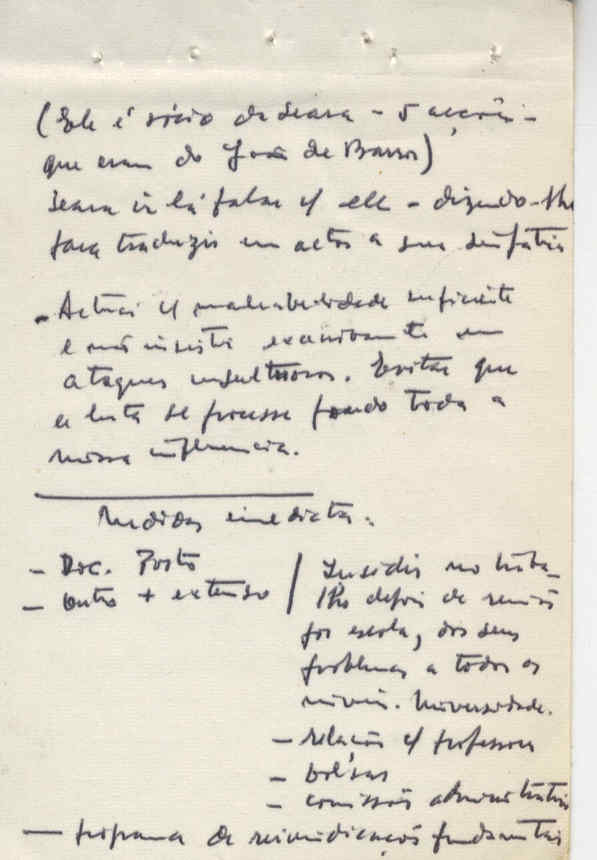 (Ele é sócio da Seara - 5 acções -
que eram do João de Barros)
Seara ir lá falar c/ ele - dizendo-lhe
para traduzir em actos a sua simpatia
- Actuar c/ maleabilidade suficiente
e não insistir excessivamente em
ataques insultuosos. Evitar que
a luta se processe fora de toda a
nossa influencia.
Medidas imediatas:
- Doc. Porto
- outro + extenso / Incidir no traba-
lho depois de reunião
por escola, dos seus
problemas a todos os
níveis. Universidade.
- relação c/ professores
- bolsas
- comissão administrativa
- programa de reivindicações fundamentais